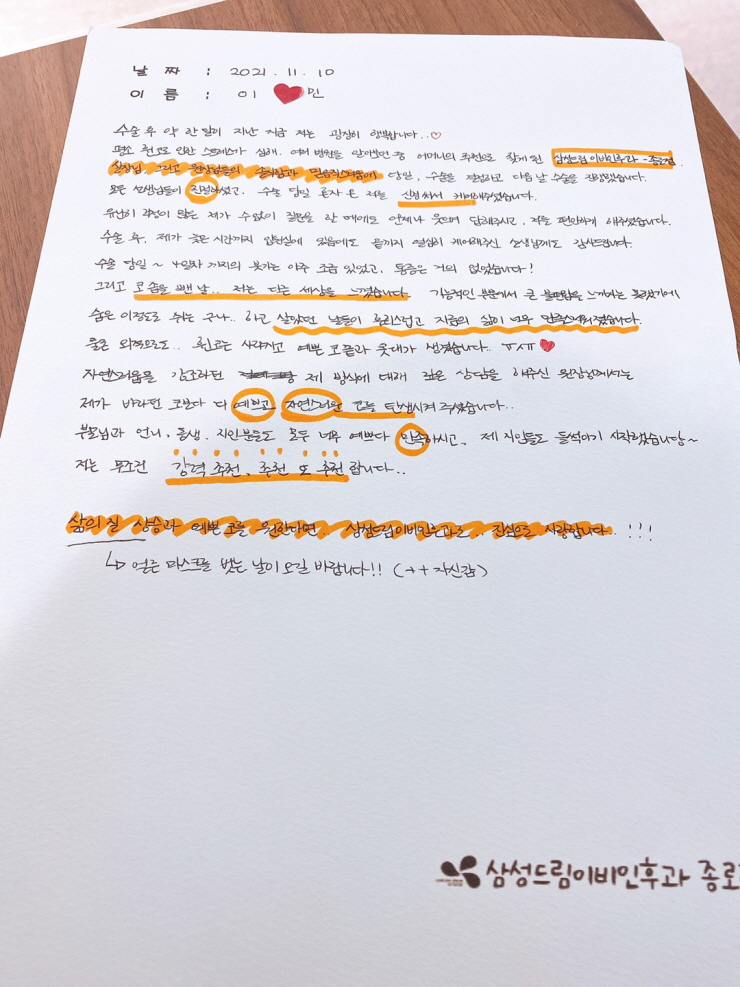 날 짜 : 2021. 11. 10
이 름 : 이 ♥ 민
수술 후 약 한 달이 지난 지금 저는 굉장히 행복합니다..♡
평소 휜코로 인한 스트레스가 심해, 여러 병원을 알아봤던 중 어머니의 추천으로 찾게 된 삼성드림이비인후과-종로점.
실장님, 그리고 원장님들의 솔직함과 믿음직스러움에 당일, 수술을 결정하고 다음 날 수술을 진행했습니다.
모든 선생님들이 친절하셨고, 수술 당일 혼자 온 저를 신경써서 케어해주셨습니다.
유난히 걱정이 많은 제가 수없이 질문을 할 때에도 언제나 웃으며 답해주시고, 저를 편안하게 해주셨습니다.
수술 후, 제가 늦은 시간까지 입원실에 있음에도 끝까지 열심히 케어해주신 선생님께도 감사드립니다.
수술 당일 ~ 4일차 까지의 붓기는 아주 조금 있었고, 통증은 거의 없었습니다!
그리고 코 솜을 뺀 날.. 저는 다른 세상을 느꼈습니다. 기능적인 부분에서 큰 불편함을 느끼지는 못했기에
숨은 이정도로 쉬는 구나.. 하고 살았던 날들이 후회스럽고 지금의 삶이 너무 만족스러워졌습니다.
물론 외적으로도.. 휜코는 사라지고 예쁜 코끝과 콧대가 생겼습니다.. ㅠㅅㅠ ♥
자연스러움을 강조하던 제 방식에 대해 깊은 상담을 해주신 원장님께서는
제가 바라던 코보다 더 예쁘고 자연스러운 코를 탄생시켜 주셨습니다..
부모님과 언니, 동생, 지인분들도 모두 너무 예쁘다 만족하시고, 제 지인들도 들썩이기 시작했습니당~
저는 무조건 강력 추천, 추천 또 추천 합니다..
삶의 질 상승과 예쁜 코를 원한다면.. 삼성드림이비인후과로.. 진심으로 사랑합니다..!!!
↳ 얼른 마스크를 벗는 날이 오길 바랍니다!! (++ 자신감)
삼성드림이비인후과 종로